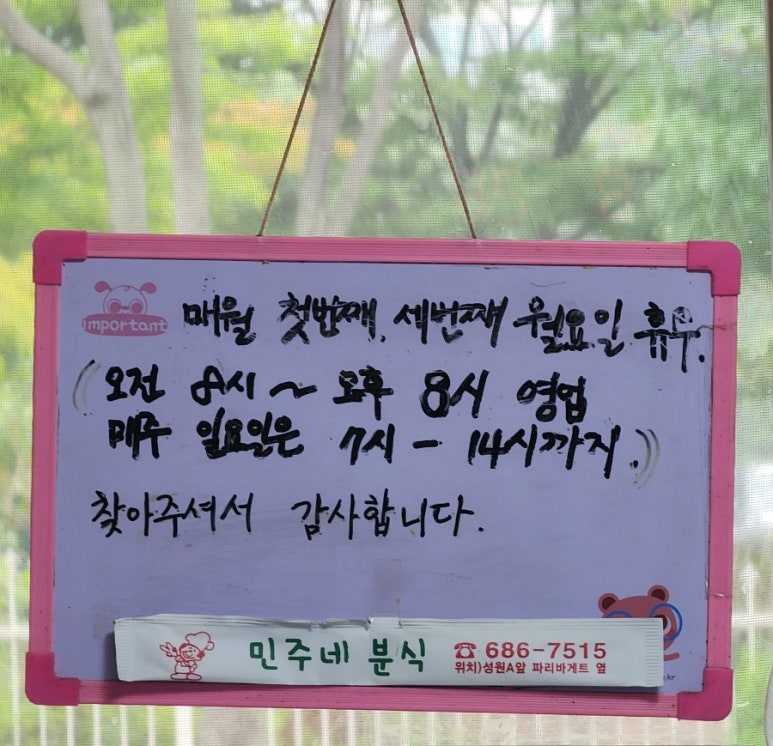 important
매월 첫번째, 세번째 월요일 휴무.
(오전 8시 ~ 오후 8시 영업
매주 일요일은 7시 - 14시까지.)
찾아주셔서 감사합니다.
민주네 분식 ☎ 686-7515
위치)성원A앞 파리바게트 옆